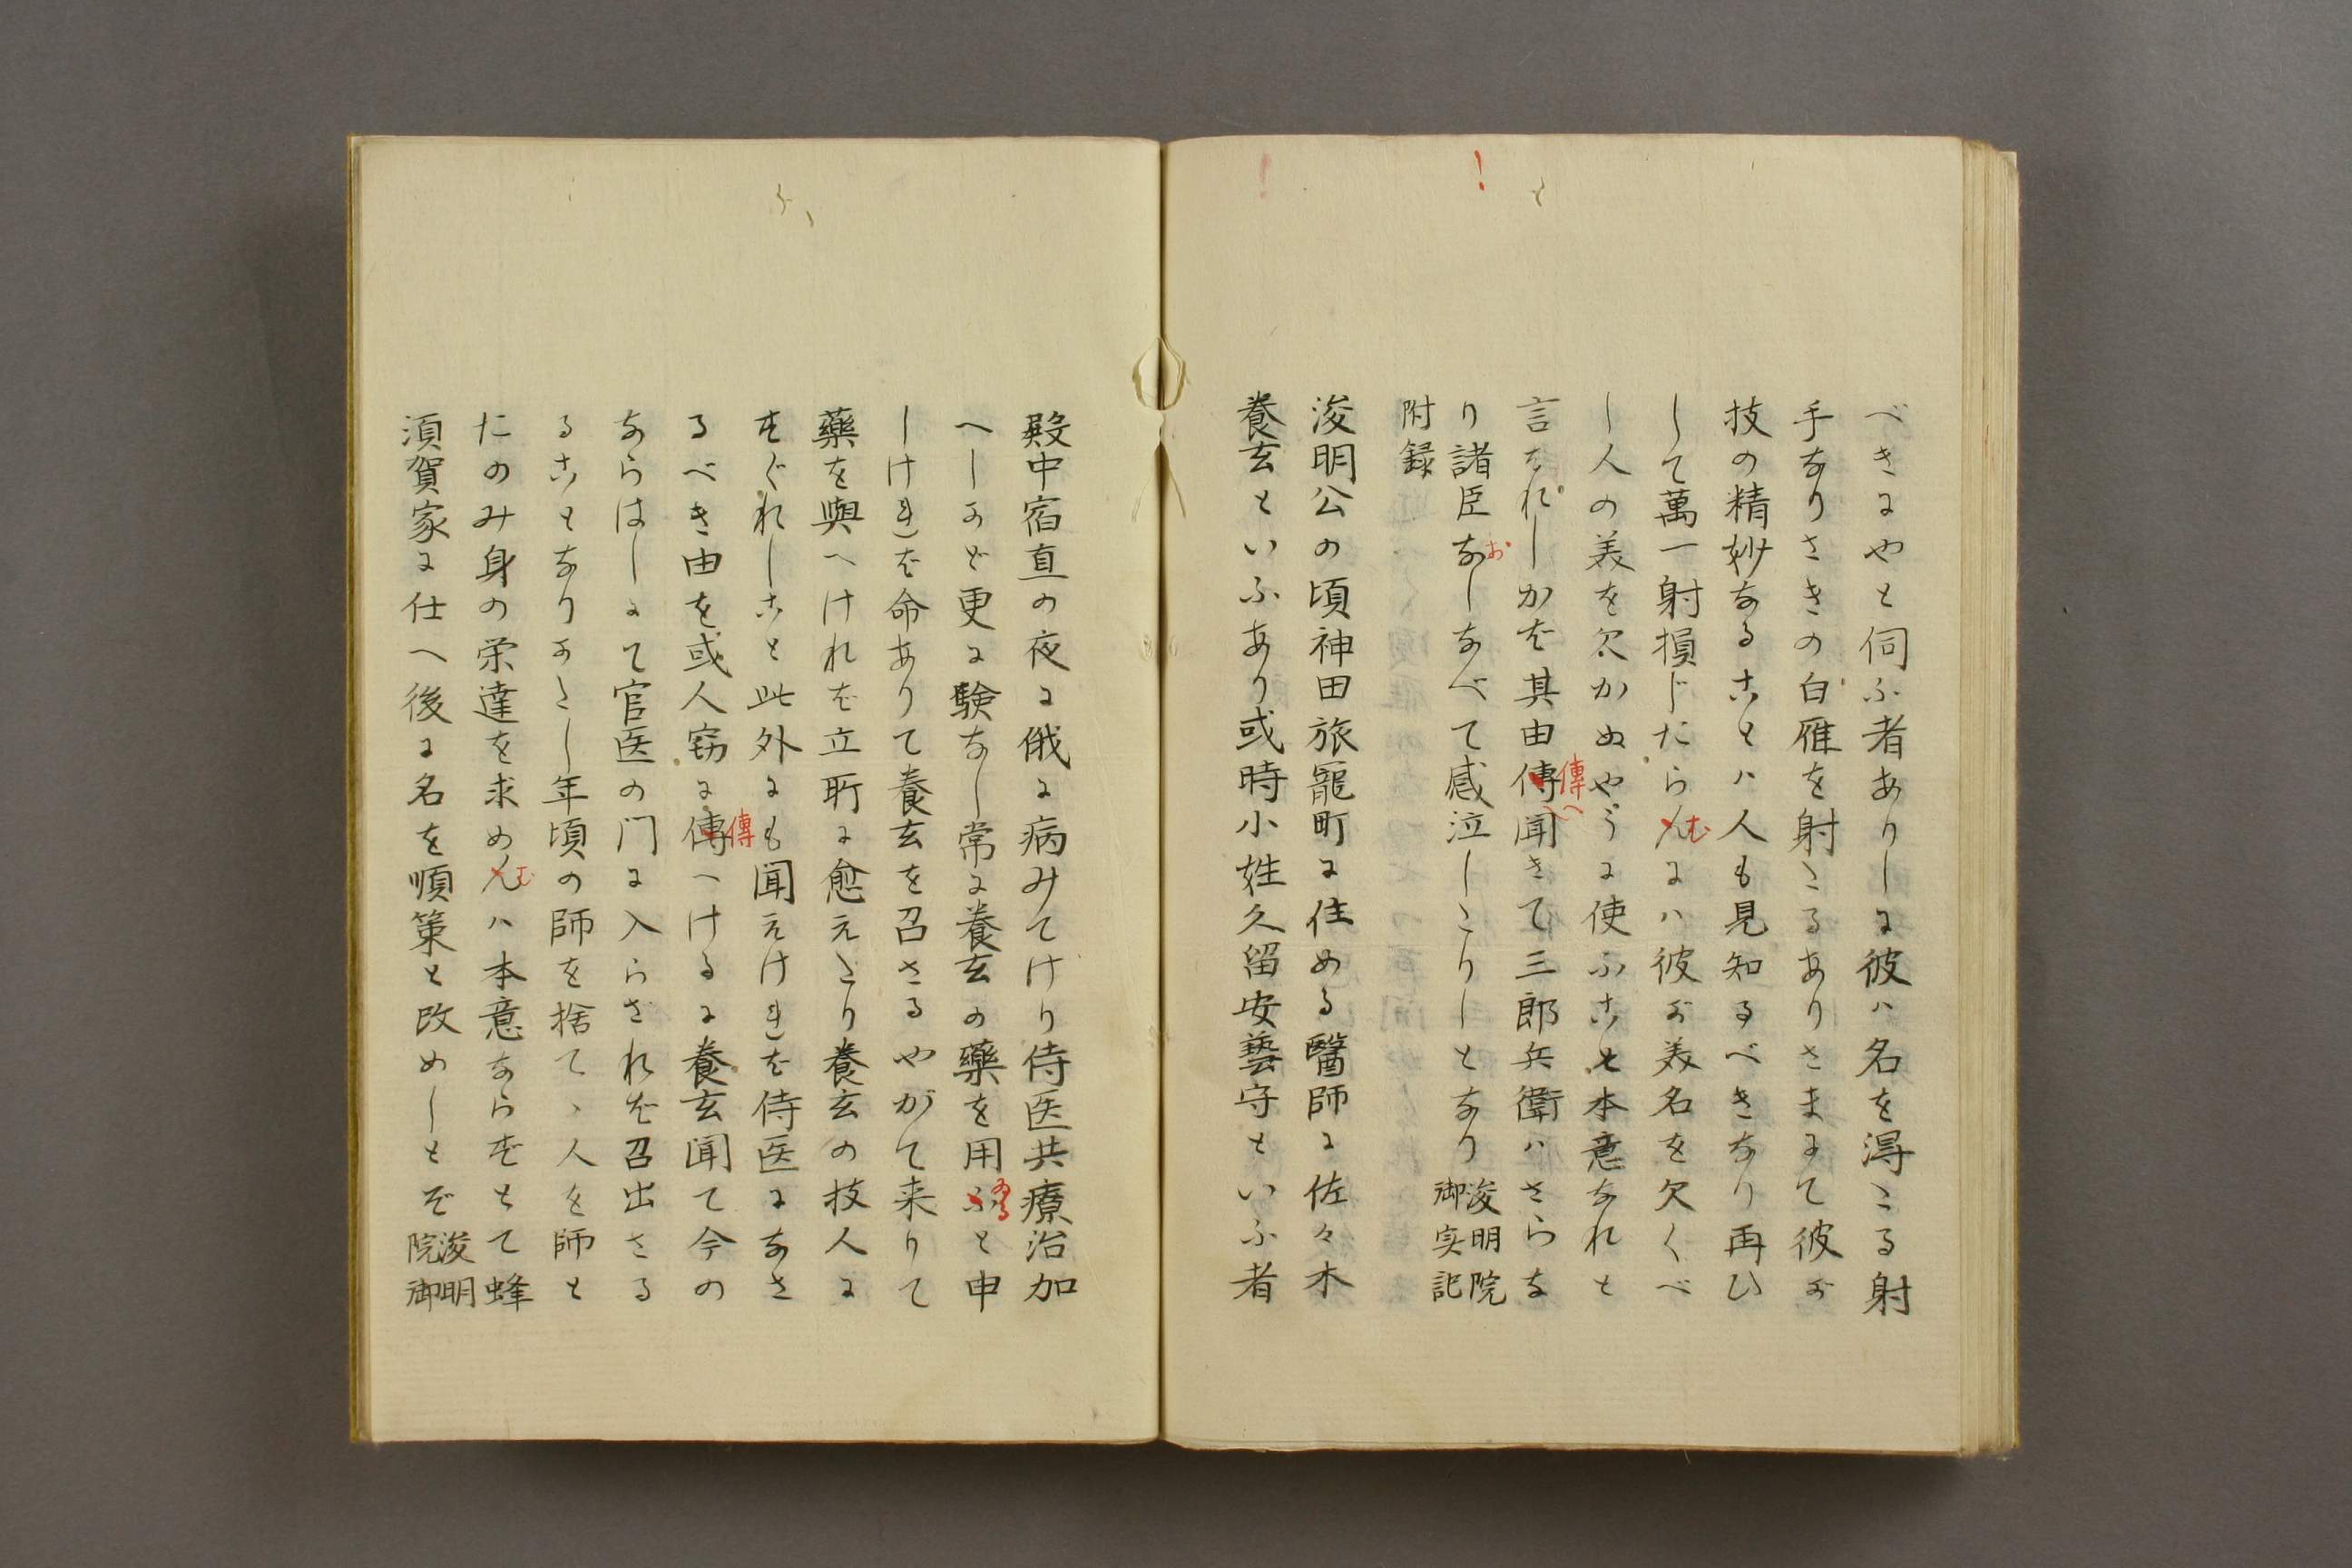 べきにやと伺ふ者ありしに彼ハ名を得たる射
手なりさきの白雁を射たるありさまにて彼が
技の精妙なることハ人も見知るべきなり再ひ
して萬一射損じたらんにハ彼が美名を欠くべ
む
し人の美を欠かぬやうに使ふこと本意なれと
言はれしかば其由傳聞きて三郎兵衛ハさらな
傳へ
り諸臣なしなべて感泣したりしとなり 浚明院
お
御実記
附録
浚明公の頃神田旅籠町に住める醫師に佐々木
養玄といふあり或時小姓久留安藝守といふ者
殿中宿直の夜に俄に病みてけり侍医共療治加
へしかど更に験なし常に養玄の藥を用ふと申
ゐる
しければ命ありて養玄を召さるやがて来りて
藥を與へければ立所に愈えたり養玄の技人に
すぐれしこと此外にも聞えければ侍医になさ
るべき由を或人窃に傳へけるに養玄聞て今の
傳
ならはしにて官医の門に入らざれば召出さる
ることなりがたし年頃の師を捨てゝ人を師と
たのみ身の栄達を求めんハ本意ならずとて蜂
む
須賀家に仕へ後に名を順策と改めしとぞ 浚明
院御